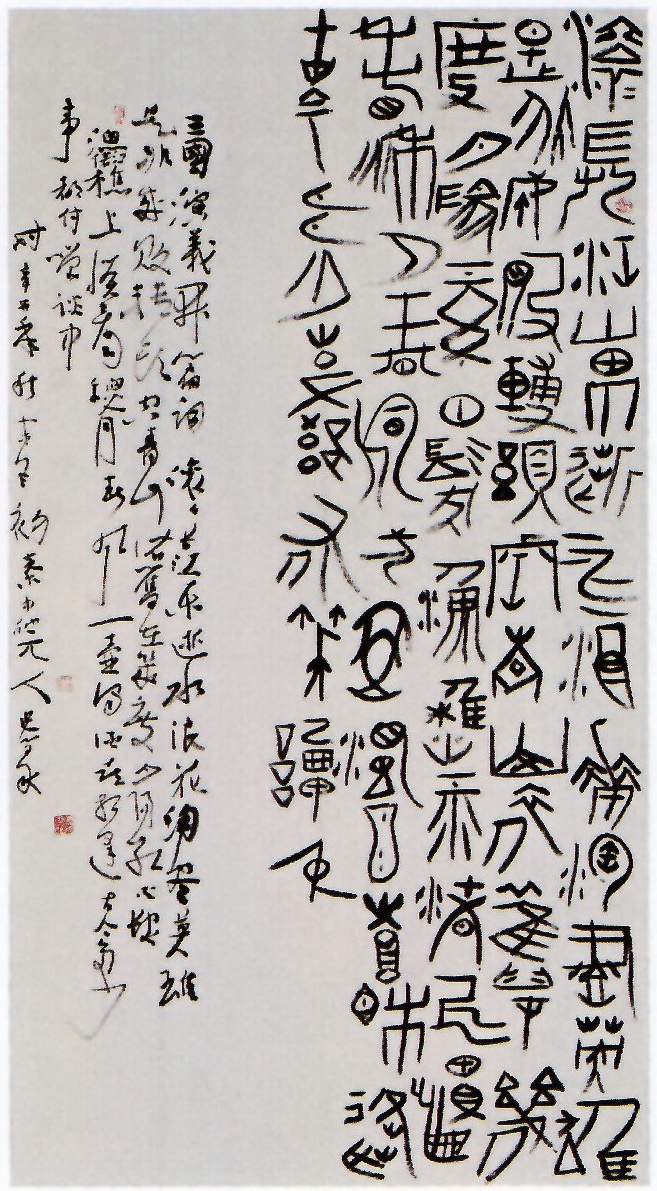 滚長江東逝水浪花淘盡英雄
是非成敗轉頭空青山依舊在幾
度夕陽紅白髮漁樵江渚上慣
看秋月春風一壺濁酒喜相逢
古今多少事都付笑談中
三國演義開篇詞滾滾長江東逝水浪花淘盡英雄
是非成敗轉頭空青山依舊在幾度夕陽紅白髮
漁樵上慣看秋月春風一壺濁酒喜相逢古今多少
事都付笑談中
時辛丑